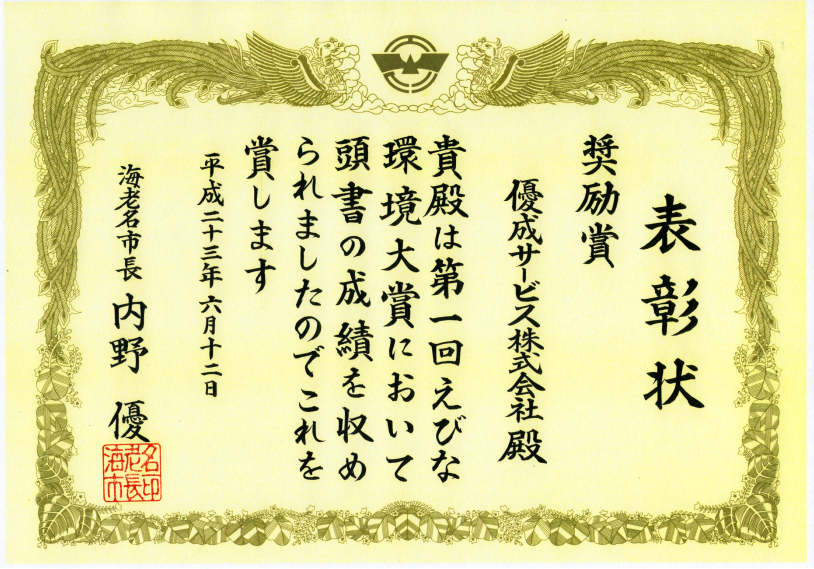 表彰状
奨励賞
優成サービス株式会社 殿
貴殿は第一回えびな
環境大賞において
頭書の成績を収め
られましたのでこれを
賞します
平成二十三年六月十二日
海老名市長 内野 優
海老名市長印